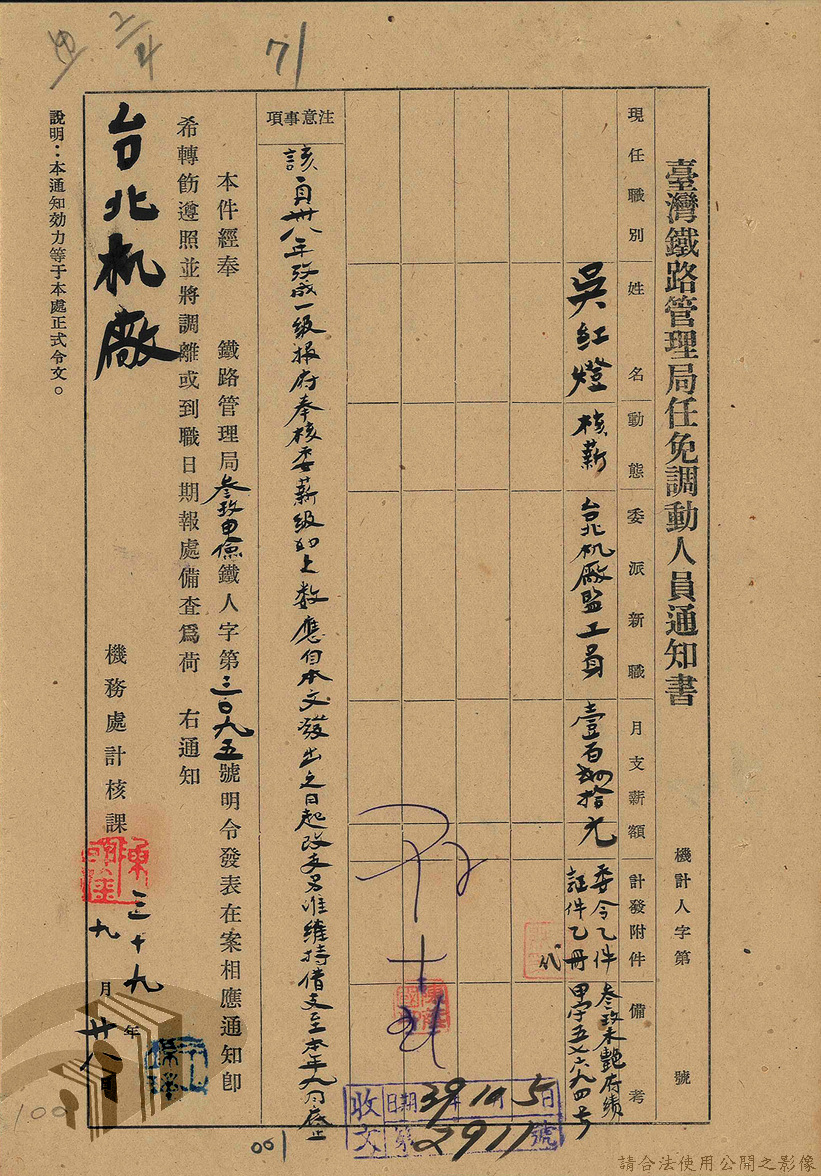 臺灣鐵路管理局任免調動人員通知書
機計人字第 號
現任職別
姓名
動態
委派新職
月支薪額
計發附件
備考
吳紅燈
核薪
台北机廠監工員
壹百拾元
委令乙件
証件乙冊
叁玖未艷府績
甲字五六九四号
注意事項
該員卅八年考成一級報府奉核委薪級如上數應自本文發出之日起改支另准維持借支至本年九月底止
本件經奉 鐵路管理局叁玖申儉鐵人字第三〇九五號明令發表在案相應通知卽
希轉飭遵照並將調離或到職日期報處備查爲荷 右通知
台北机廠
機務處計核課
三十九年
九月廿八日
說明：本通知効力等于本處正式令文。
71
代
收文
日期39年10月5日
第2911號
001
100
請合法使用公開之影像